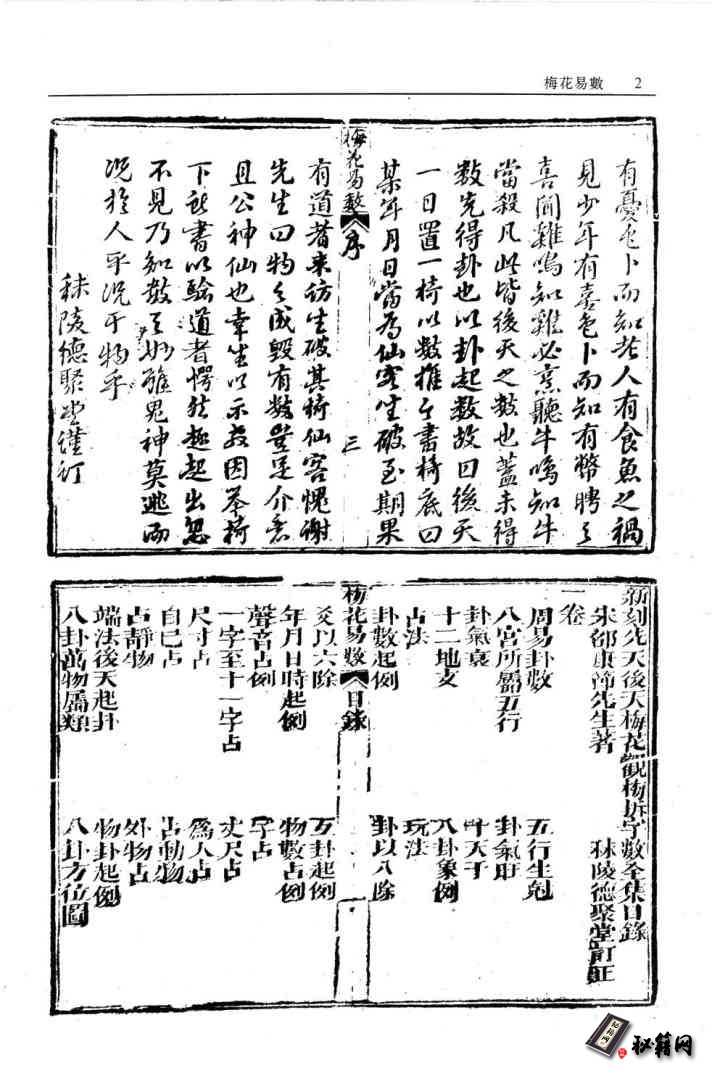 梅花易數 2
有憂色卜而知老人有食魚之禍
見少年有喜色卜而知有幣聘之
喜聞雞鳴知雞必烹聽牛鳴知牛
當殺凡此皆後天之數也蓋未得
數先得卦也以卦起數故曰後天
一日置一椅以數推之書椅底曰
某年月日當為仙客坐破至期果
梅花易數 序 三
有道者來訪坐破其椅仙客愧謝
先生曰物之成毀有數豈足介意
且公神仙也幸坐以示教因舉椅
下所書以驗道者愕然趨起出忽
不見乃知數之妙雖鬼神莫逃而
況於人乎況于物乎
秣陵德聚堂謹訂
新刻先天後天梅花觀梅拆字數全集目錄
宋邵康節先生著 秣陵德聚堂訂正
一卷
周易卦數 五行生剋
八宮所屬五行 卦氣旺
卦氣衰 十天干
十二地支 八卦象例
占法 玩法
卦數起例 卦以八除
梅花易數 目錄
爻以六除 互卦起例
年月日時起例 物數占例
聲音占例 字占
一字至十一字占 丈尺占
尺寸占 為人占
自己占 占動物
占靜物 外物占
端法後天起卦 物卦起例
八卦萬物屬類 八卦方位圖
秘籍网